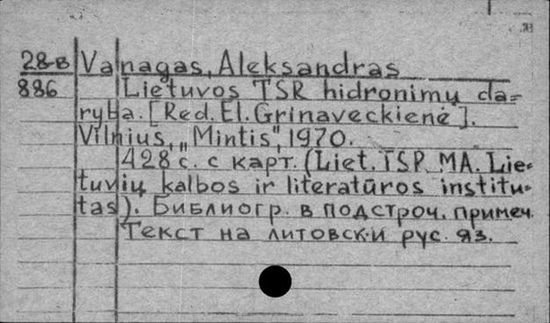 28-в Vanagas, Aleksandras
886 Lietuvos TSR hidronimų da=
ryba. [Red. El. Grinaveckienė].
Vilnius, „Mintis", 1970.
428 с. с карт. (Liet. TSR MA. Lie-
tuvių kalbos ir literatūros institu-
tas). Библиогр. в подстроч. примеч.
Текст на литовск. и рус. яз.